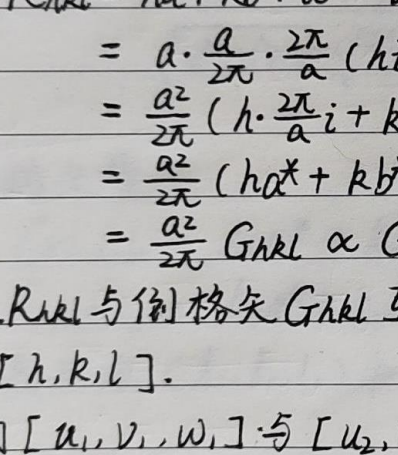 = a · a/2π · 2π/a (hi
= a²/2π (h · 2π/a i + k
= a²/2π (ha* + kb
= a²/2π Ghkl ∝
Rhkl与倒格矢Ghkl
[h,k,l].
[u₁,v₁,w₁]与[u₂,